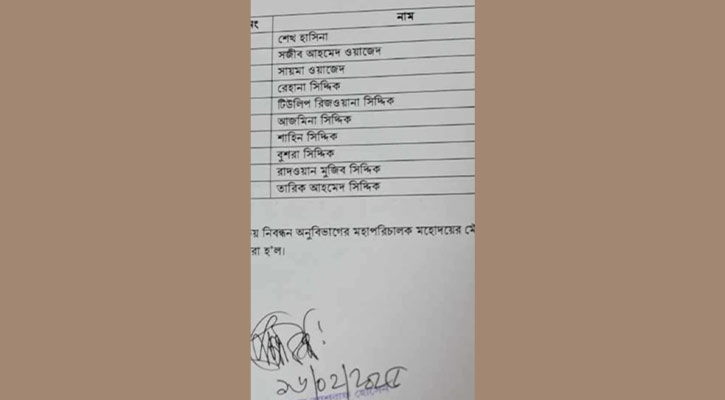 নাম
শেখ হাসিনা
সজীব আহমেদ ওয়াজেদ
সায়মা ওয়াজেদ
রেহানা সিদ্দিক
টিউলিপ রিজওয়ানা সিদ্দিক
আজমিনা সিদ্দিক
শাহিন সিদ্দিক
বুশরা সিদ্দিক
রাদওয়ান মুজিব সিদ্দিক
তারিক আহমেদ সিদ্দিক
নিবন্ধন অনুবিভাগের মহাপরিচালক মহোদয়ের
হ'ল।
১৬/০২/২০২৫